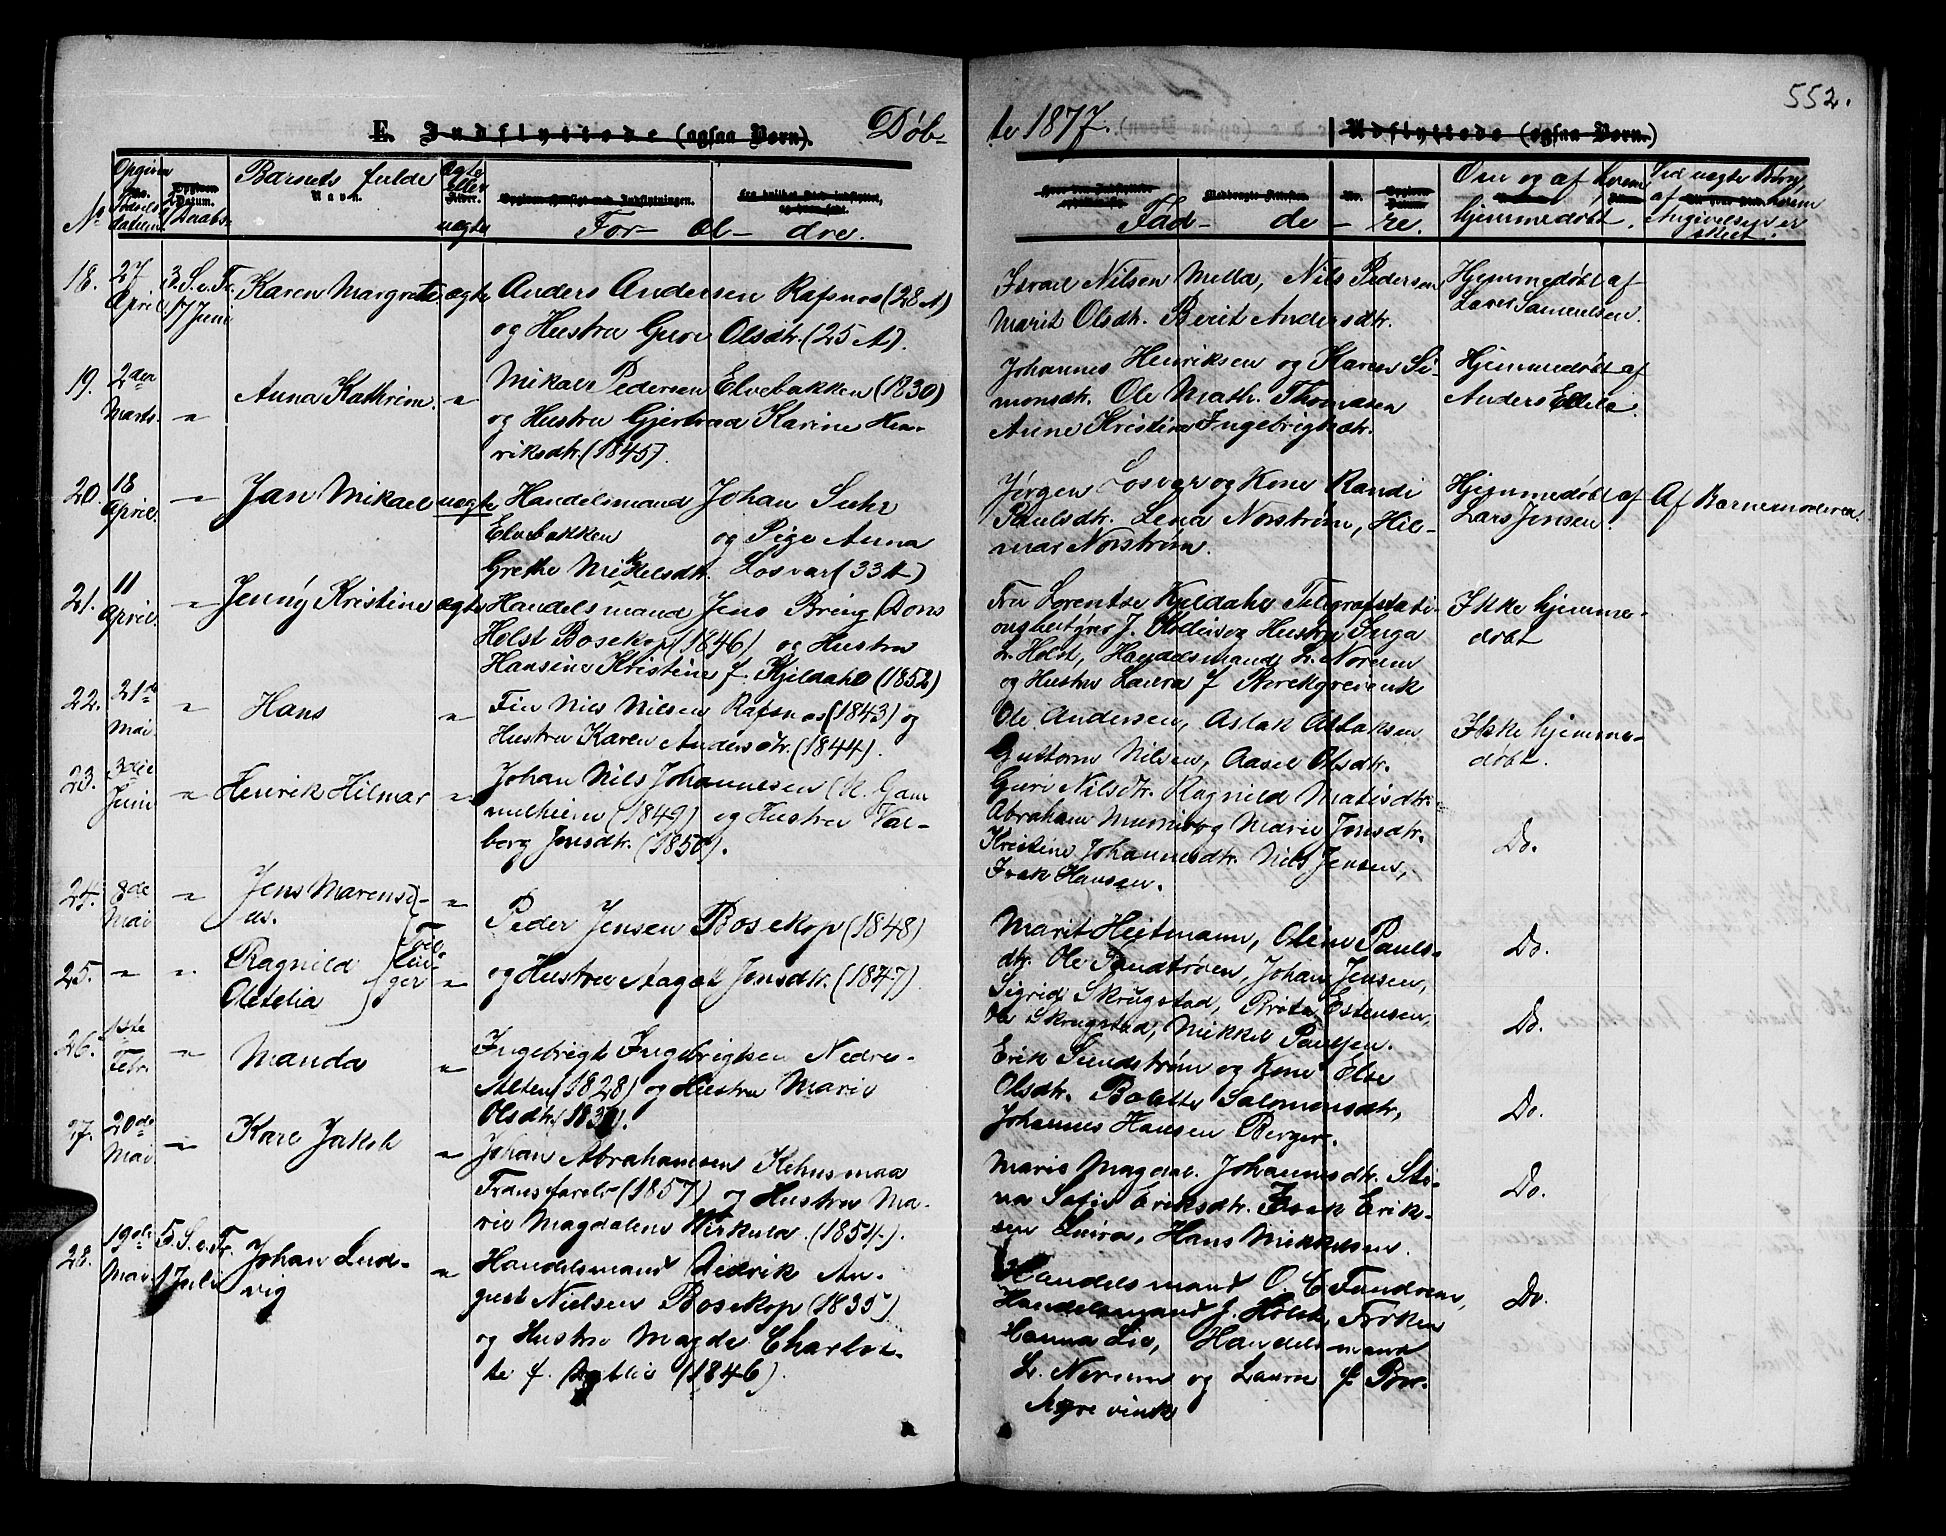 552.
E. Indflyttede (ogsaa Børn). Døb-
te 1877. Udflyttede (ogsaa Børn.)
No Opgiven Fødselsdatum. Daabs- Barnets fulde Navn. Ægte eller uægte For- æl- dre.
Fad- de- re. Om og af hvem hjemmedøbt. Ved uægte Børn, af hvem Angivelsen er skeet.
18. 27 April 3. S. e. Tr. 17 Juni Karen Margrete ægte Anders Andersen Rafsnos (28 A)
og Hustru Guri Olsdtr. (25 A).
Israel Nilsen Mella, Nils Pedersen
Marit Olsdtr. Berit Andersdtr.
Hjemmedøbt af
Lars Samuelsen.
19. 2den Marts. " Anna Kathrine. " Mikael Pedersen Elvebakken (1830)
og Hustru Gjertrud Karine Hen-
riksdtr. (1845).
Johannes Henriksen og Karen Si-
monsdtr. Ole Math. Thomasen
Anne Kristine Ingebrigtsdtr.
Hjemmedøbt af
Anders
20. 18 April. " Jan Mikael uægte Handelsmand Johan Suhr
Elvebakken og Pige Anna
Grethe Mikkelsdtr. Losvar (33 A)
Jørgen Losvar og Kone Randi
Paulsdtr. Lena Norstrøm, Hil-
mar Norstrøm.
Hjemmedøbt af
Lars Jensen.
Af Barnemoderen.
21. 11 April. " Jenny Kristine ægte Handelsmand Jens Bring Dons
Holst Bosekop (1846) og Hustru
Hansine Kristine f. Kjeldahl (1852)
Fru Lorentse Kjeldahl Telegrafstati-
onsbestyrer J. Hustru Inga
L. Holst, Handelsmand L. Norum
og Hustru Laura f
Ikke hjemme-
døbt
22. 21de Mai " Hans " Fin Nils Nilsen Rafsnos (1843) og
Hustru Karen Andersdtr. (1844).
Ole Andersen, Aslak Aslaksen
Guttorm Nilsen, Aasel Olsdtr.
Guri Nilsdtr. Ragnild Matisdtr.
Ikke hjemme-
døbt.
23. 3die Juni " Henrik Hilmar " Johan Nils Johannesen (K. Gam-
melheim (1849) og Hustru Val-
borg Jonsdtr. (1850).
Abraham og Marie Jonsdtr.
Kristine Johannesdtr. Nils Jensen,
Isak Hansen.
Do.
24. 8de Mai " Jens Marensi-
us. "
25. " " Ragnild
Oletelia Tvillinger "
Peder Jensen Bosekop (1848)
og Hustru Aagot Jonsdtr. (1847)
Marit Heitmann, Oline Pauls-
dtr. Ole Sandtrøen, Johan Jensen,
Sigrid Skrugstad, Estensen,
Ole Skrugstad, Mikkel Paulsen.
Do.
Do.
26. 1ste Febr. " Manda " Ingebrigt Ingebrigtsen Nedre-
Alten (1828) og Hustru Marie
Olsdtr.
Erik Sundstrøm og Kone Else
Olsdtr. Bolette Salomonsdtr,
Johannes Hansen Berger.
Do.
27. 20de Mai " Karl Jakob " Johan Abrahamsen Kehusmaa
Transfarelv (1857) og Hustru Ma-
rie Magdalene Wirkula. (1854).
Marie Magdal. Johannesdtr. Sti-
na Sofie Eriksdtr. Isak Erik-
sen Hans Mikkelsen.
Do.
28. 19de Mai 5. S. e. Tr. 1 Juli Johan Lud-
vig " Handelsmand Didrik Au-
gust Nielsen Bosekop (1835)
og Hustru Magda Charlot-
te f. (1846).
Handelsmand O. C. Fandrem,
Handelsmand J. Holst, Frøken
Hanna Lie, Handelsmand
L. Norum og Laura f. Bor-
Do.